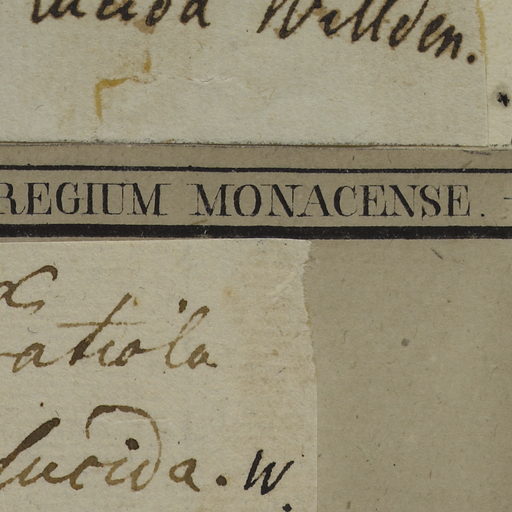 lucida Willden.
REGIUM MONACENSE.
Gratiola
lucida. W.